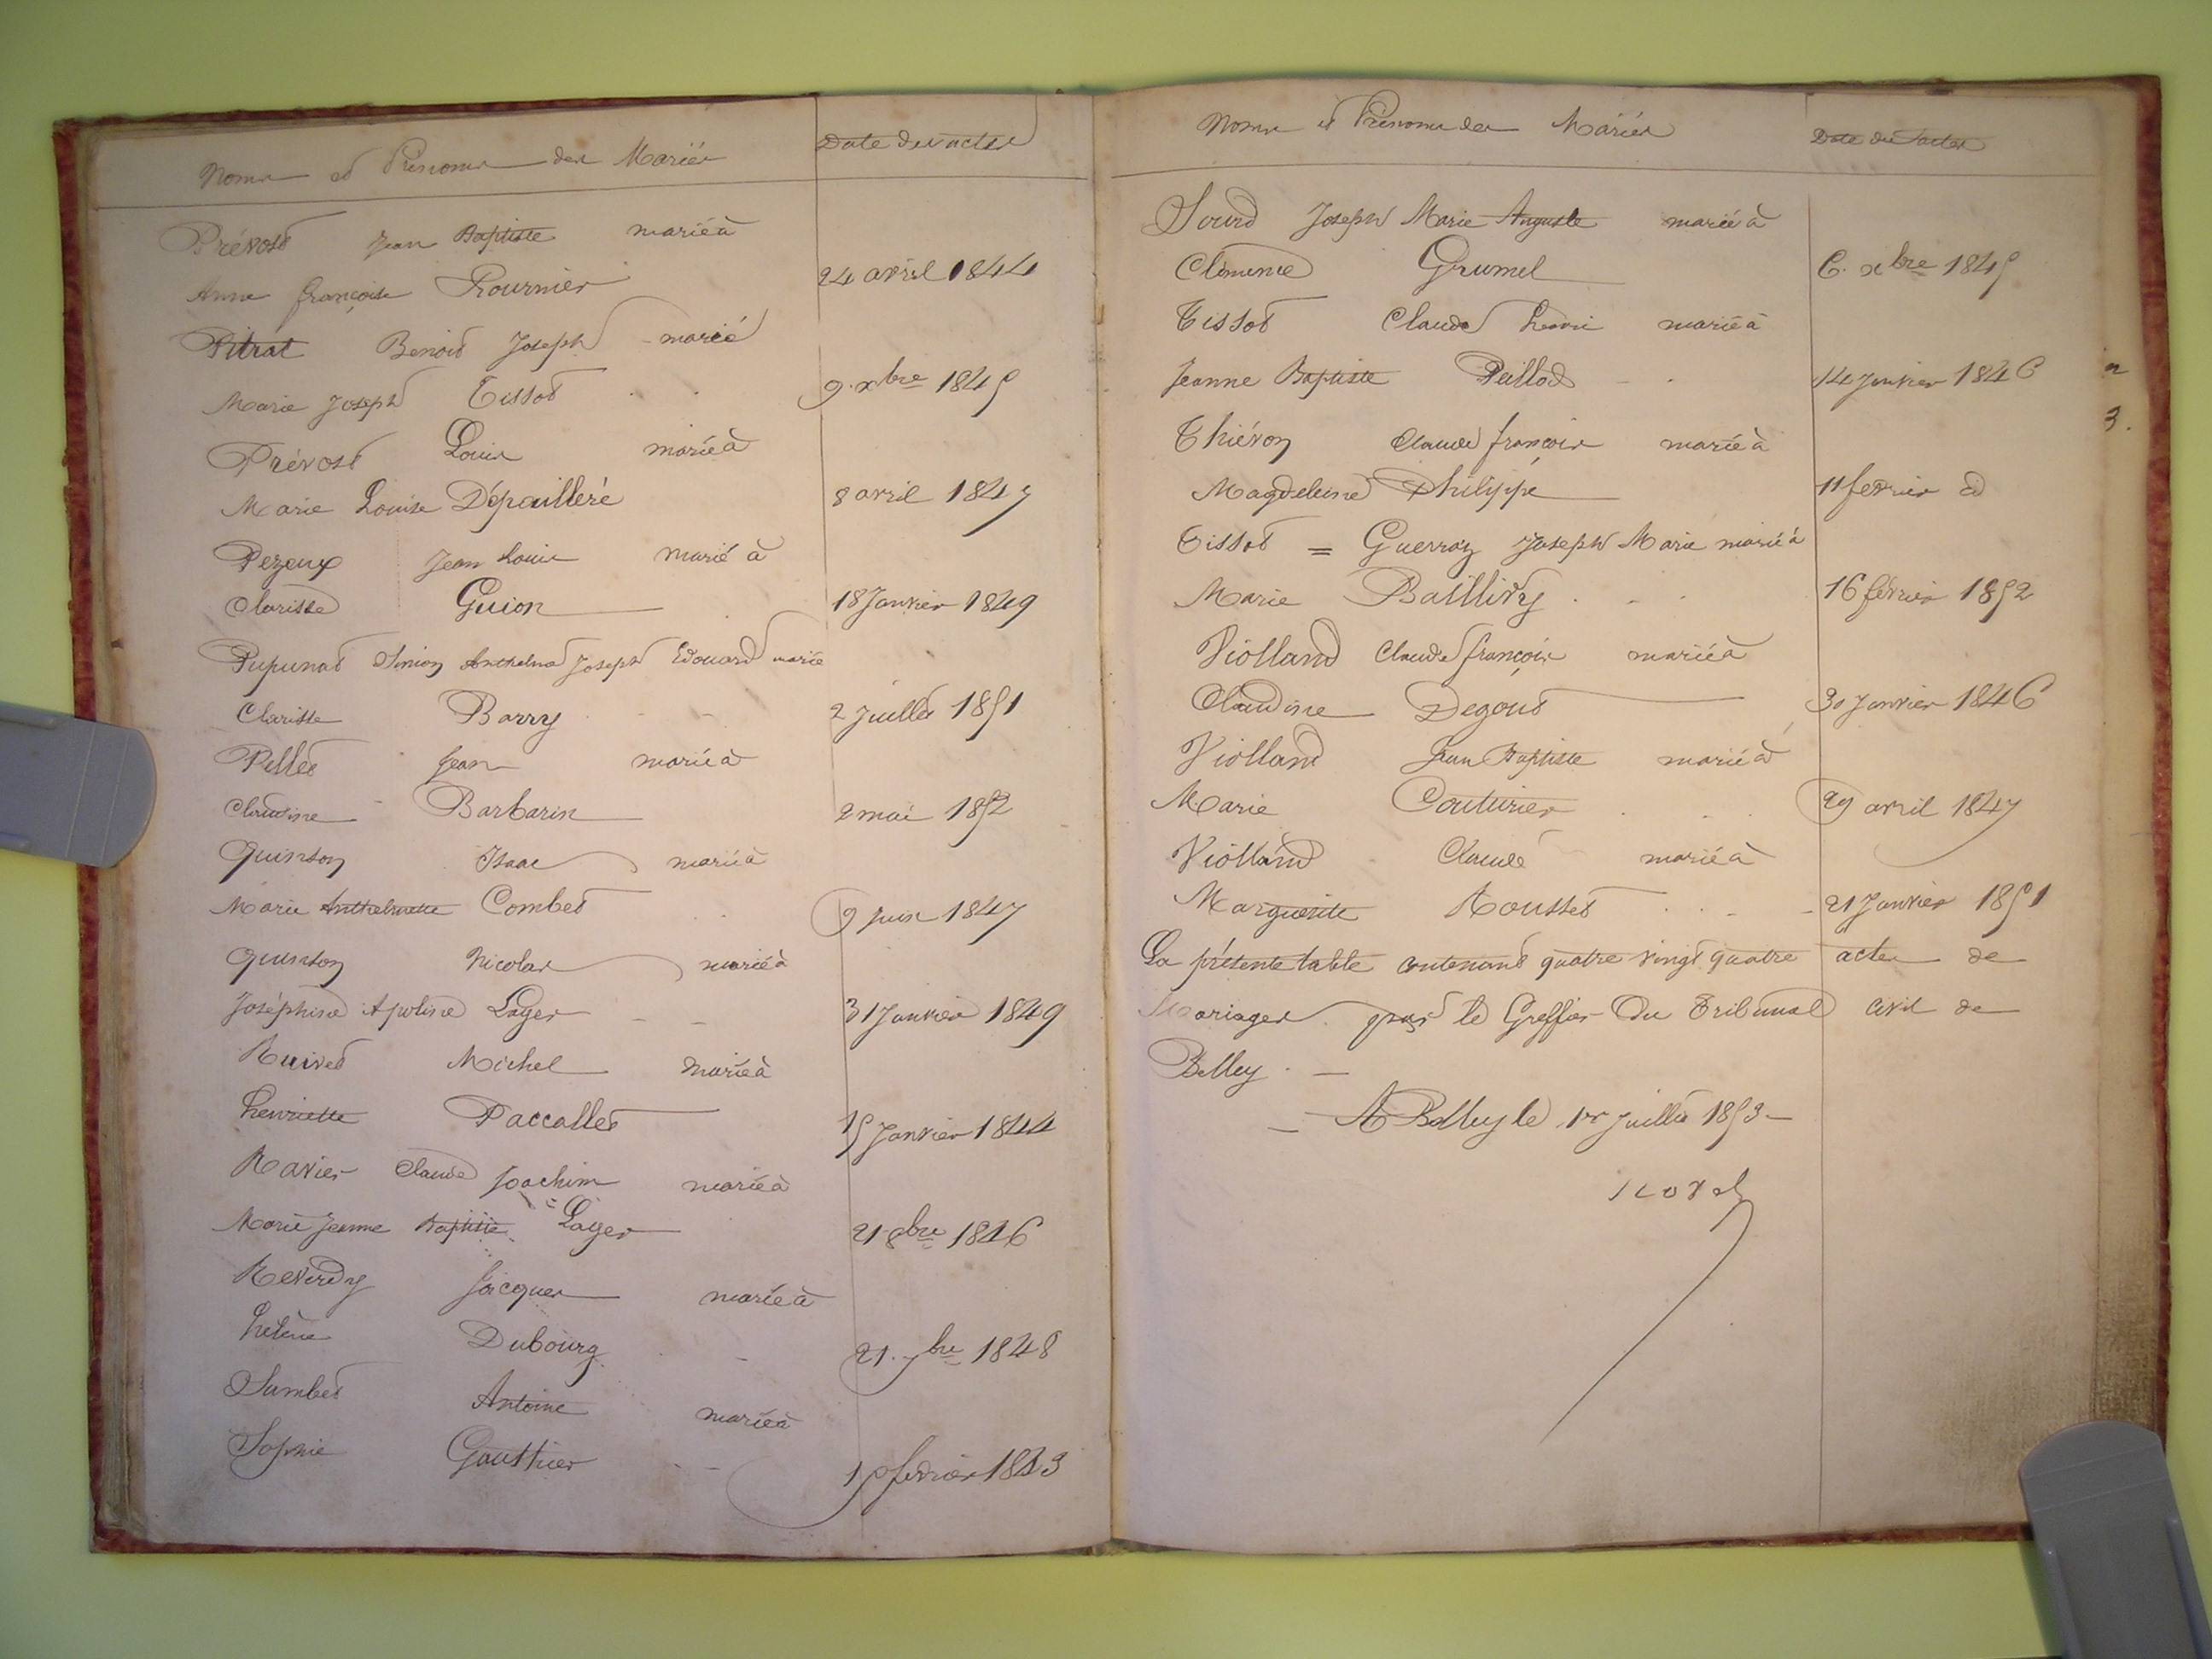 Noms et Prénoms des Mariés Date des actes
Prévost Jean Baptiste marié à
Anne françoise Fournier 24 avril 1844
Pitrat Benoit Joseph marié
Marie Joseph Tissot 9 xbre 1845
Prévost Louis marié à
Marie Louise Dépailleré 8 avril 1847
Pezeux Jean Louis marié à
Clarisse Guion 18 Janvier 1849
Pupunat Simion Anthelme Joseph Edouard marié
Clarisse Barry 2 Juillet 1851
Pellet Jean marié à
Claudine Barbarin 2 mai 1852
Quinson Isaac marié à
Marie Anthelmette Combet 9 juin 1847
Quinson Nicolas marié à
Joséphine Apoline Lager 31 Janvier 1849
Ruivet Michel marié à
henriette Paccallet 15 Janvier 1844
Ravier Claude Joachim marié à
Marie Jeanne Baptiste Lager 21 8bre 1846
Reverdy Jacques marié à
hélène Dubourg 21. 7bre 1848
Sambet Antoine marié à
Sophie Gauthier 15 fevrier 1843
Noms et Prénoms des Mariés Date des actes
Sourd Joseph Marie Auguste marié à
Clémence Grumel 6. xbre 1845
Tissot Claude henri marié à
Jeanne Baptiste Peillod 14 Janvier 1846
Thiévon Claude françois marié à
Magdeleine Philippe 11 fevrier id
Tissot = Guerraz Joseph Marie marié à
Marie Baillivy 16 février 1852
Violland Claude françois marié à
Claudine Degout 30 Janvier 1846
Violland Jean Baptiste marié à
Marie Couturier 29 avril 1847
Violland Claude marié à
Marguerite Rousset 21 Janvier 1851
La présente table contenant quatre vingt quatre actes de
Mariages par le Greffier du Tribunal civil de
Belley.
A Belley le 1er Juillet 1853